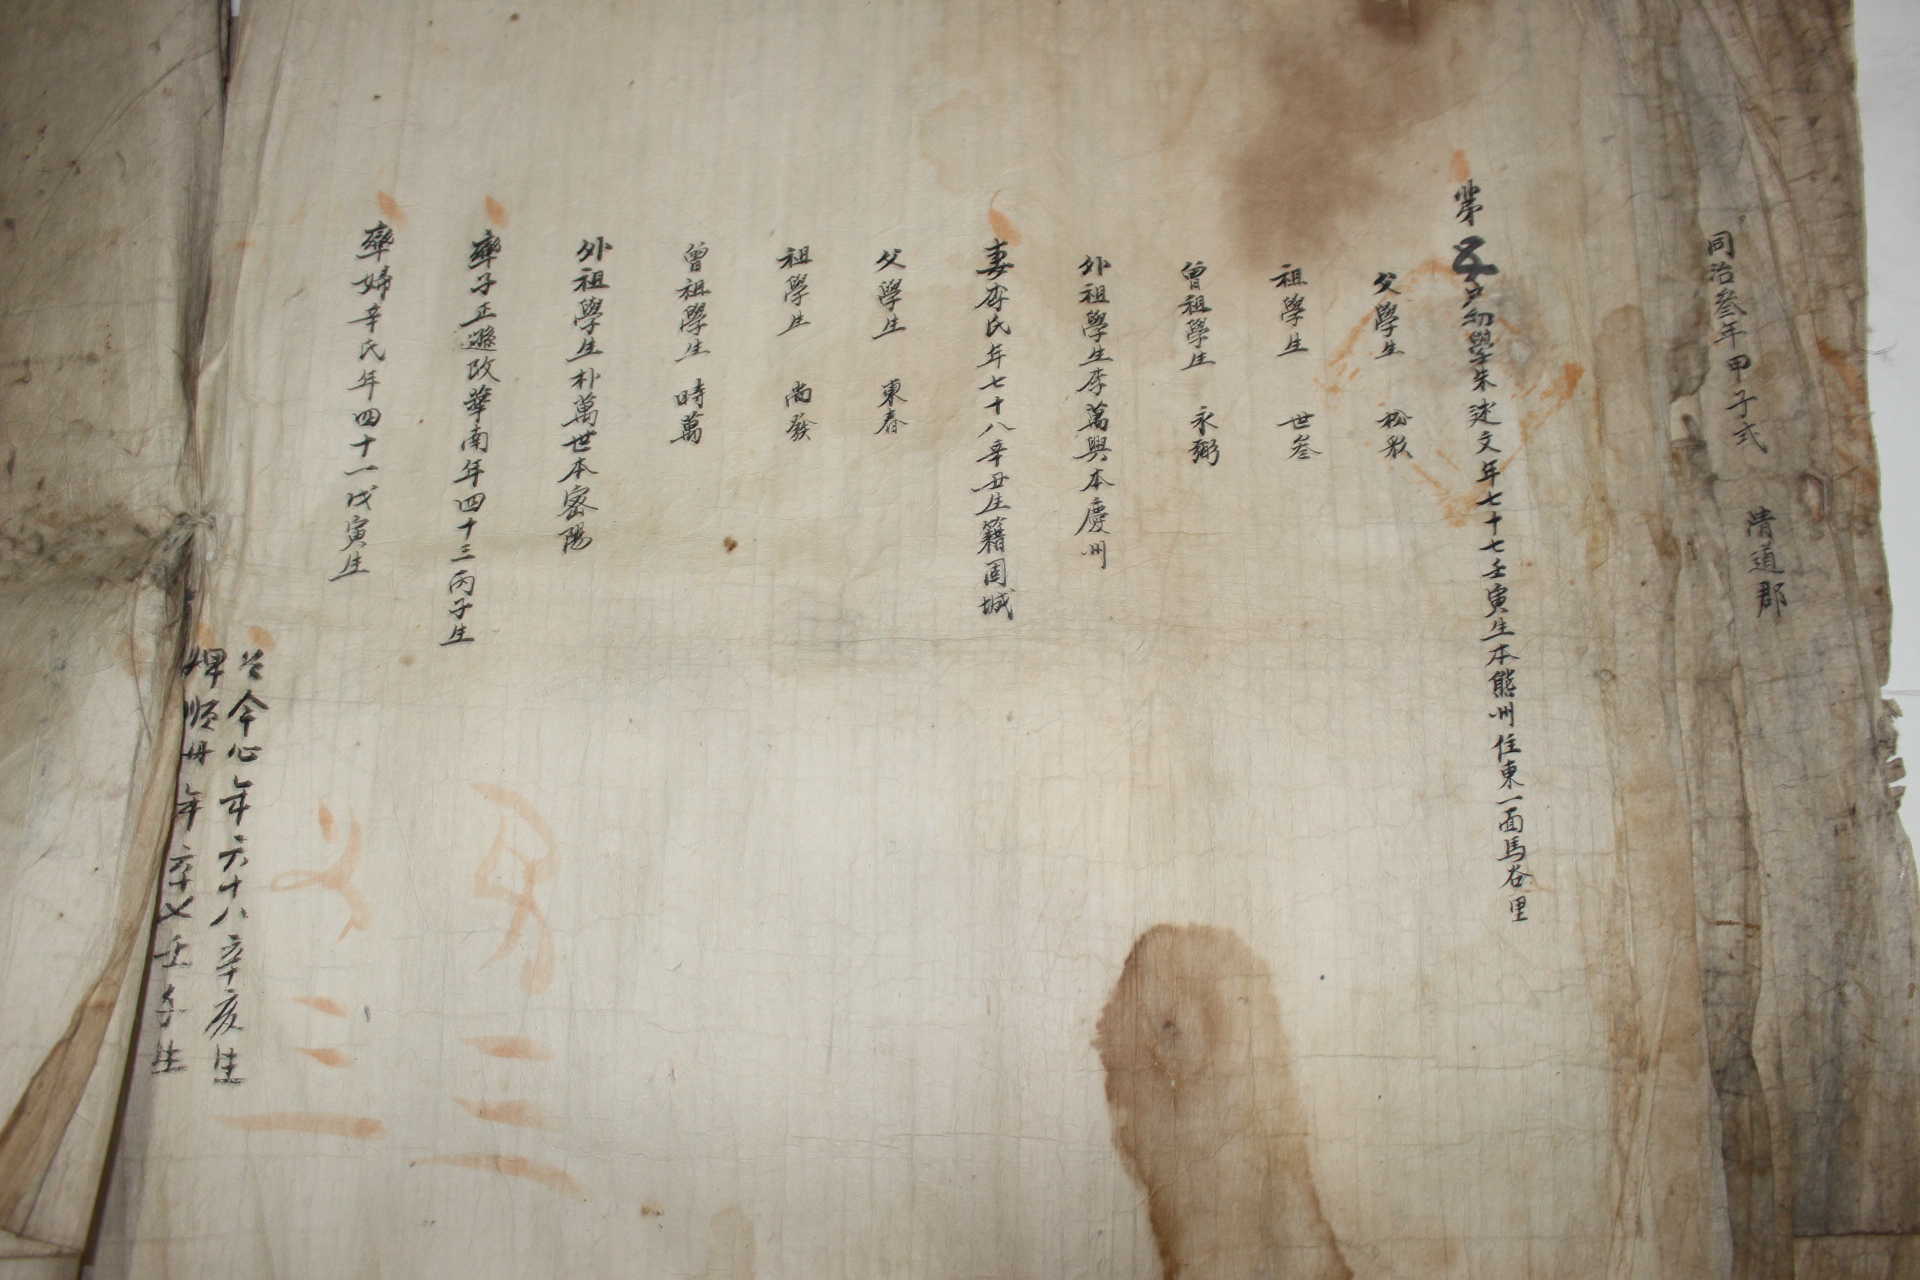 同治叁年甲子式 淸道郡
第五戶幼學朱述文年七十七壬寅生本熊州住東一面馬谷里
父學生 松秋
祖學生 世叄
曾祖學生 永弼
外祖學生李萬興本慶州
妻李氏年七十八辛丑生籍固城
父學生 東春
祖學生 尙發
曾祖學生 時萬
外祖學生朴萬世本密陽
率子正遜改華南年四十三丙子生
率婦辛氏年四十一戊寅生
今心年六十八辛亥生
婢順丹年六十七壬子生
男三
女三